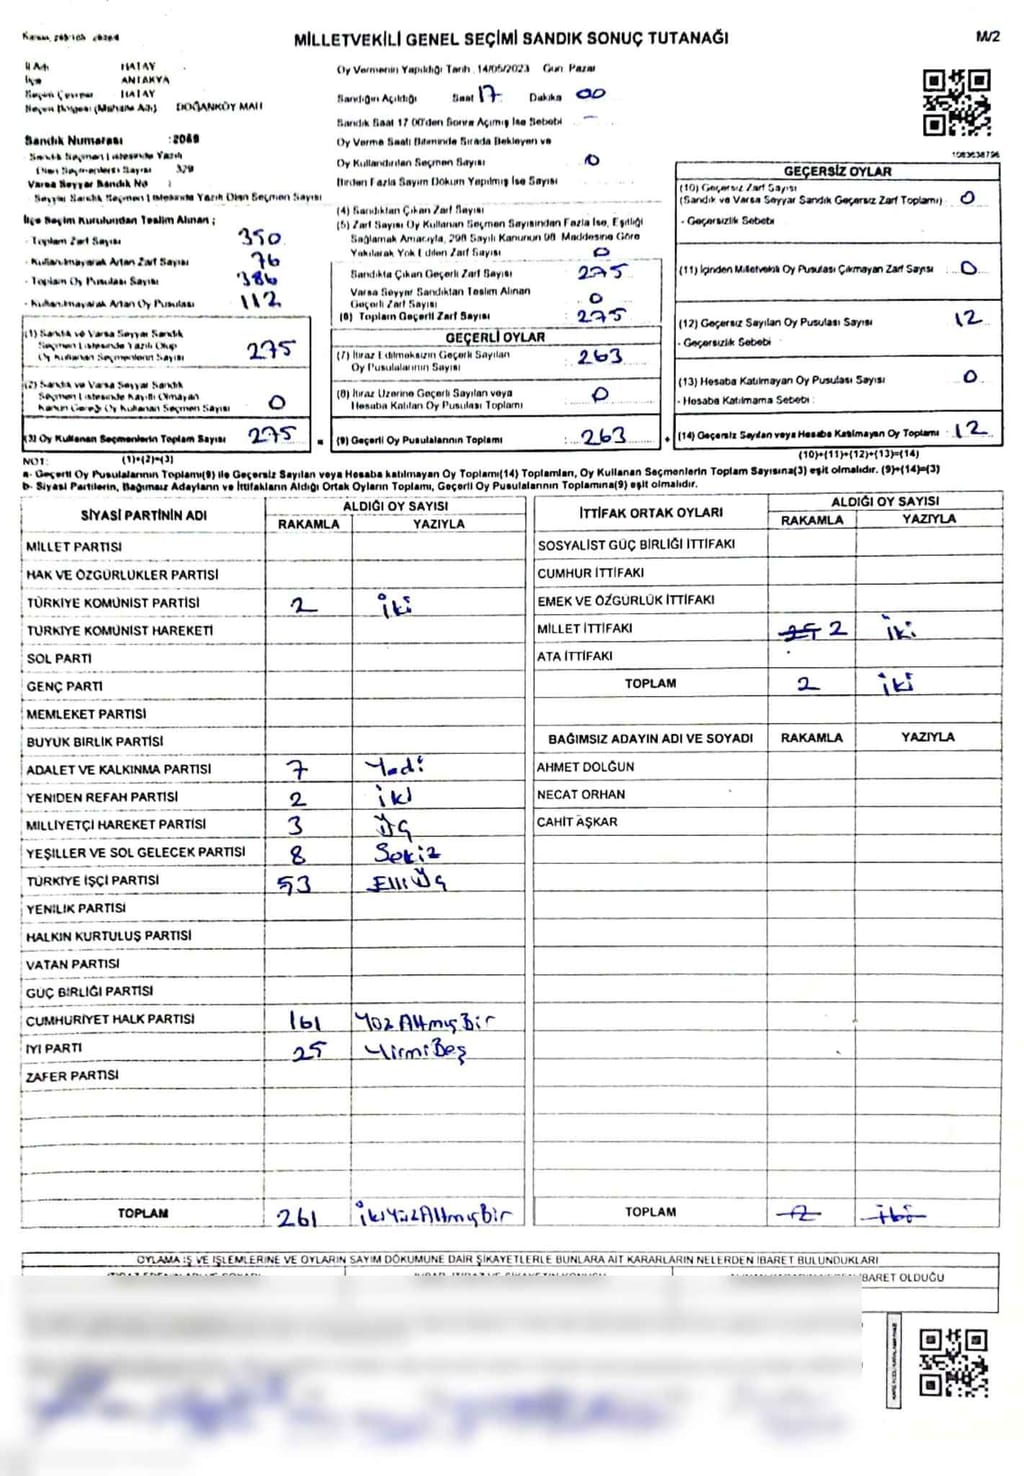 MİLLETVEKİLİ GENEL SEÇİMİ SANDIK SONUÇ TUTANAĞI
M/2
İl Adı HATAY
İlçe ANTAKYA
Seçim Çevresi HATAY
Seçim Bölgesi (Mahalle Adı) DOĞANKÖY MAH
Sandık Numarası :2069
Sandık Seçmen Listesinde Yazılı
Olan Seçmenlerin Sayısı 329
Varsa Seyyar Sandık No :
Seyyar Sandık Seçmen Listesinde Yazılı Olan Seçmen Sayısı
İlçe Seçim Kurulundan Teslim Alınan ;
- Toplam Zarf Sayısı 350
- Kullanılmayarak Artan Zarf Sayısı 76
- Toplam Oy Pusulası Sayısı 386
- Kullanılmayarak Artan Oy Pusulası 112
(1) Sandık ve Varsa Seyyar Sandık
Seçmen Listesinde Yazılı Olup
Oy Kullanan Seçmenlerin Sayısı 275
(2) Sandık ve Varsa Seyyar Sandık
Seçmen Listesinde Kayıtlı Olmayan
Kanun Gereği Oy Kullanan Seçmen Sayısı 0
(3) Oy Kullanan Seçmenlerin Toplam Sayısı 275
Oy Vermenin Yapıldığı Tarih :14/05/2023 Gün: Pazar
Sandığın Açıldığı Saat 17 Dakika 00
Sandık Saat 17 00'den Sonra Açılmış İse Sebebi —
Oy Verme Saati Bitiminde Sırada Bekleyen ve
Oy Kullandırılan Seçmen Sayısı 0
Birden Fazla Sayım Döküm Yapılmış İse Sayısı
(4) Sandıktan Çıkan Zarf Sayısı
(5) Zarf Sayısı Oy Kullanan Seçmen Sayısından Fazla İse, Eşitliği
Sağlamak Amacıyla, 298 Sayılı Kanunun 98. Maddesine Göre
Yakılarak Yok Edilen Zarf Sayısı 0
Sandıkta Çıkan Geçerli Zarf Sayısı 275
Varsa Seyyar Sandıktan Teslim Alınan
Geçerli Zarf Sayısı 0
(6) Toplam Geçerli Zarf Sayısı 275
GEÇERLİ OYLAR
(7) İtiraz Edilmeksizin Geçerli Sayılan
Oy Pusulalarının Sayısı 263
(8) İtiraz Üzerine Geçerli Sayılan veya
Hesaba Katılan Oy Pusulası Toplamı 0
(9) Geçerli Oy Pusulalarının Toplamı 263
1083638796
GEÇERSİZ OYLAR
(10) Geçersiz Zarf Sayısı
(Sandık ve Varsa Seyyar Sandık Geçersiz Zarf Toplamı) 0
- Geçersizlik Sebebi
(11) İçinden Milletvekili Oy Pusulası Çıkmayan Zarf Sayısı 0
(12) Geçersiz Sayılan Oy Pusulası Sayısı 12
- Geçersizlik Sebebi
(13) Hesaba Katılmayan Oy Pusulası Sayısı 0
- Hesaba Katılmama Sebebi :
(14) Geçersiz Sayılan veya Hesaba Katılmayan Oy Toplamı 12
NOT: (1)+(2)=(3) (10)+(11)+(12)+(13)=(14)
a- Geçerli Oy Pusulalarının Toplamı(9) ile Geçersiz Sayılan veya Hesaba katılmayan Oy Toplamı(14) Toplamları, Oy Kullanan Seçmenlerin Toplam Sayısına(3) eşit olmalıdır. (9)+(14)=(3)
b- Siyasi Partilerin, Bağımsız Adayların ve İttifakların Aldığı Ortak Oyların Toplamı, Geçerli Oy Pusulalarının Toplamına(9) eşit olmalıdır.
SİYASİ PARTİNİN ADI ALDIĞI OY SAYISI
RAKAMLA YAZIYLA
MİLLET PARTİSİ
HAK VE ÖZGÜRLÜKLER PARTİSİ
TÜRKİYE KOMÜNİST PARTİSİ 2 İki
TÜRKİYE KOMÜNİST HAREKETİ
SOL PARTİ
GENÇ PARTİ
MEMLEKET PARTİSİ
BÜYÜK BİRLİK PARTİSİ
ADALET VE KALKINMA PARTİSİ 7 Yedi
YENİDEN REFAH PARTİSİ 2 iki
MİLLİYETÇİ HAREKET PARTİSİ 3 Üç
YEŞİLLER VE SOL GELECEK PARTİSİ 8 Sekiz
TÜRKİYE İŞÇİ PARTİSİ 53 Elli Üç
YENİLİK PARTİSİ
HALKIN KURTULUŞ PARTİSİ
VATAN PARTİSİ
GÜÇ BİRLİĞİ PARTİSİ
CUMHURİYET HALK PARTİSİ 161 Yüz Altmış Bir
İYİ PARTİ 25 Yirmi Beş
ZAFER PARTİSİ
TOPLAM 261 İki Yüz Altmış Bir
İTTİFAK ORTAK OYLARI ALDIĞI OY SAYISI
RAKAMLA YAZIYLA
SOSYALİST GÜÇ BİRLİĞİ İTTİFAKI
CUMHUR İTTİFAKI
EMEK VE ÖZGÜRLÜK İTTİFAKI
MİLLET İTTİFAKI 2 iki
ATA İTTİFAKI
TOPLAM 2 iki
BAĞIMSIZ ADAYIN ADI VE SOYADI RAKAMLA YAZIYLA
AHMET DOLĞUN
NECAT ORHAN
CAHİT AŞKAR
TOPLAM
OYLAMA İŞ VE İŞLEMLERİNE VE OYLARIN SAYIM DÖKÜMÜNE DAİR ŞİKAYETLERLE BUNLARA AİT KARARLARIN NELERDEN İBARET BULUNDUKLARI
İBARET OLDUĞU